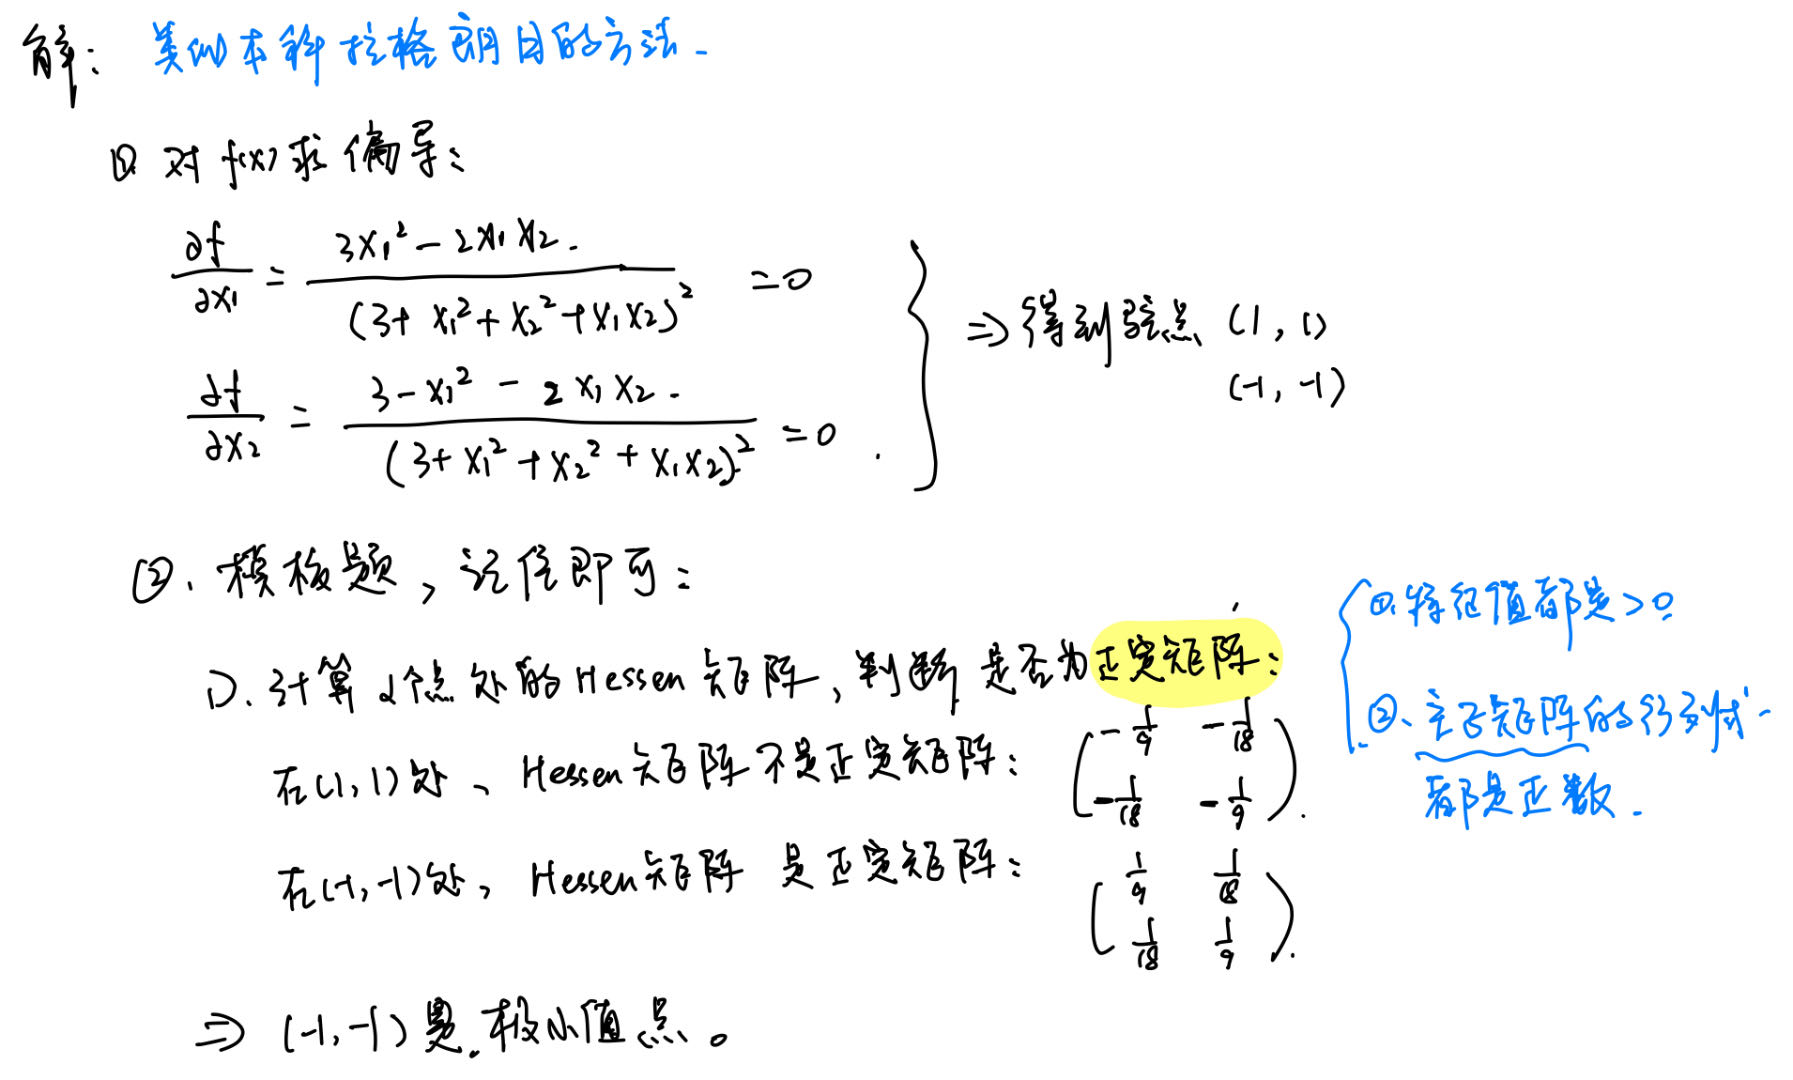 解： 类似本科拉格朗日的方法.
①. 对 f(x) 求偏导：
∂f/∂x₁ = (3x₁² - 2x₁x₂.)/(3+ x₁²+x₂²+x₁x₂)² =0
∂f/∂x₂ = (3-x₁² - 2x₁x₂.)/(3+x₁²+x₂²+x₁x₂)² =0.
⇒ 得到驻点 (1, 1)
(-1, -1)
②. 模板题，记住即可：
1). 计算 2个点处的 Hessen 矩阵，判断是否为正定矩阵：
①. 特征值都是>0
②、主子矩阵的行列式.
都是正数.
在(1,1)处、Hessen矩阵不是正定矩阵： (-1/9 -1/18
-1/18 -1/9).
在(-1,-1)处， Hessen矩阵 是正定矩阵： (1/9 1/18
1/18 1/9).
⇒ (-1,-1) 是.极小值点。